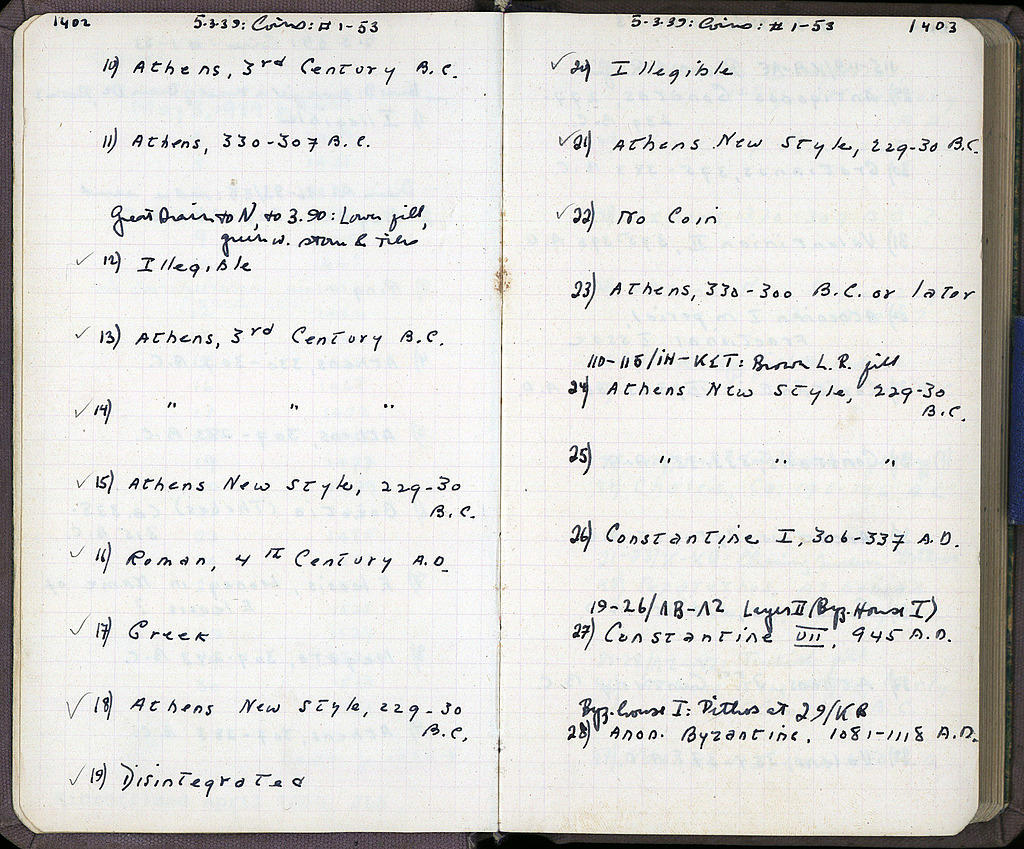 1402
5-3-39: Coins: #1-53
10) Athens, 3rd Century B.C.
11) Athens, 330-307 B.C.
Great Drain to N, to 3.90: Lower fill,
green w. stones & tiles
✓ 12) Illegible
✓ 13) Athens, 3rd Century B.C.
✓ 14) " " "
✓ 15) Athens New Style, 229-30
B.C.
✓ 16) Roman, 4th Century A.D.
✓ 17) Greek
✓ 18) Athens New Style, 229-30
B.C.
✓ 19) Disintegrated
5-3-39: Coins: #1-53
1403
✓ 20) Illegible
✓ 21) Athens New Style, 229-30 B.C.
✓ 22) No Coin
23) Athens, 330-300 B.C. or later
110-115/ΙΗ-ΚΣΤ: Brown L.R. fill
24) Athens New Style, 229-30
B.C.
25) " " "
26) Constantine I, 306-337 A.D.
19-26/ΛΒ-Λ2 Layer II (Byz. House I)
27) Constantine VII, 945 A.D.
Byz. house I: Pithos at 29/ΚΒ
28) Anon. Byzantine, 1081-1118 A.D.